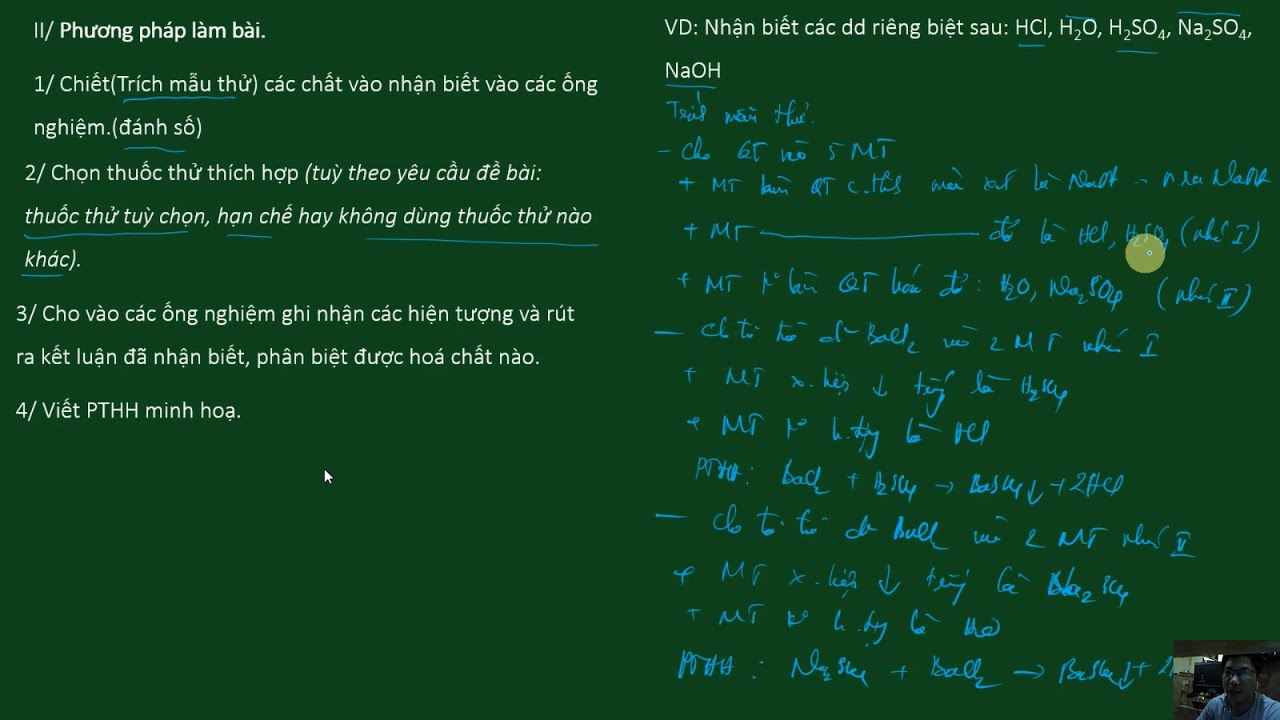 II/ Phương pháp làm bài.
1/ Chiết(Trích mẫu thử) các chất vào nhận biết vào các ống
nghiệm.(đánh số)
2/ Chọn thuốc thử thích hợp (tuỳ theo yêu cầu đề bài:
thuốc thử tuỳ chọn, hạn chế hay không dùng thuốc thử nào
khác).
3/ Cho vào các ống nghiệm ghi nhận các hiện tượng và rút
ra kết luận đã nhận biết, phân biệt được hoá chất nào.
4/ Viết PTHH minh hoạ.
VD: Nhận biết các dd riêng biệt sau: HCl, H₂O, H₂SO₄, Na₂SO₄,
NaOH
Trích mẫu thử.
- Cho QT vào 5 MT
+ MT làm QT c.thành màu xanh là NaOH
+ MT đỏ là HCl, H₂SO₄ (nhóm I)
+ MT k° làm QT hoá đỏ: H₂O, Na₂SO₄ (nhóm II)
- Cho từ từ dd BaCl₂ vào 2 MT nhóm I
+ MT x.hiện ↓ trắng là H₂SO₄
+ MT k° h.tượng là HCl
PTHH: BaCl₂ + H₂SO₄ → BaSO₄↓ + 2HCl
- Cho từ từ dd BaCl₂ vào 2 MT nhóm II
+ MT x.hiện ↓ trắng là Na₂SO₄
+ MT k° h.tượng là H₂O
PTHH: Na₂SO₄ + BaCl₂ → BaSO₄↓ + 2